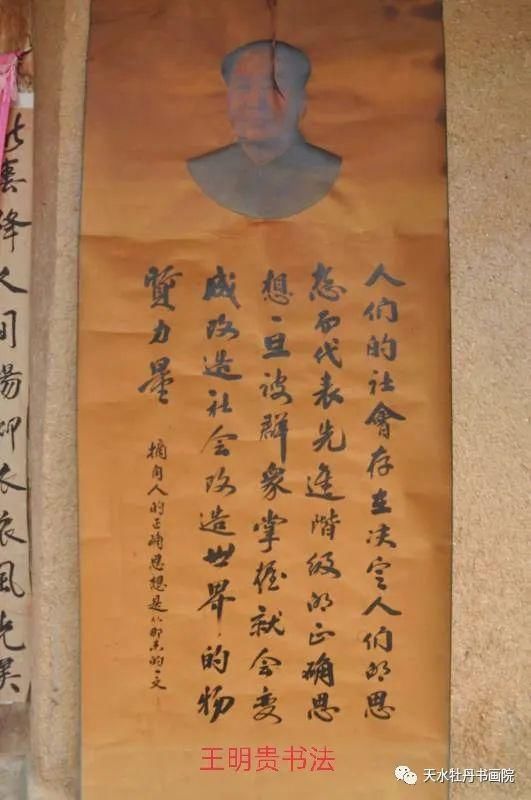 人们的社會存在决定人们的思
想而代表先進階级的正确思
想一旦被群衆掌握就会变
成改造社会改造世界的物
质力量
摘自人的正确思想是从那里来的一文
人间 柳 風光美
王明贵书法
天水牡丹书画院